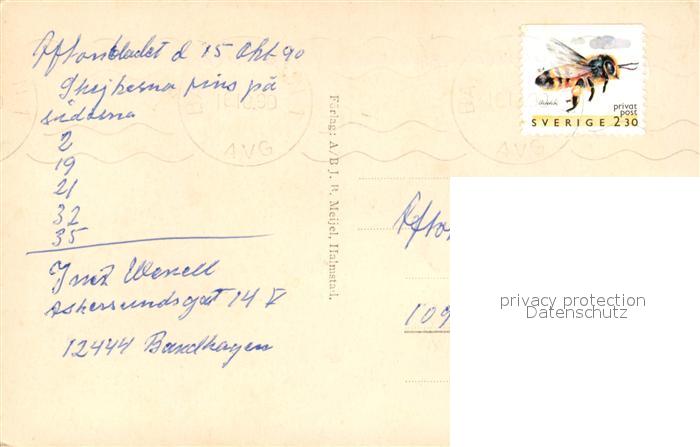 Aftonbladet d 15 okt-90
Skojkesna fins på
sidorna
2
19
21
32
35
Wexell
gat 14 V
12444 Bandhagen
Förlag: A/B J. P. Meijel, Halmstad.
AVG
AVG
privat
post
SVERIGE 2 30
Afto
109
privacy protection
Datenschutz